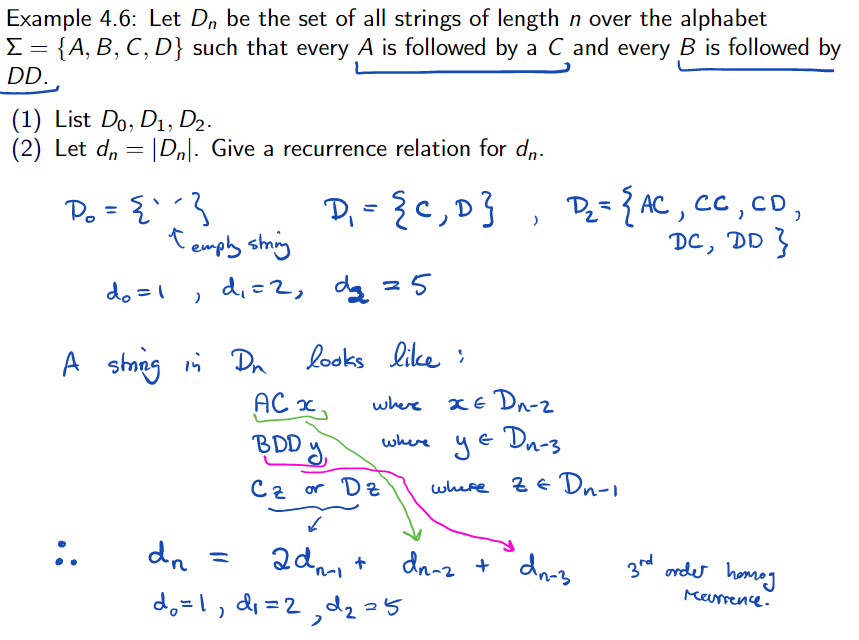 Example 4.6: Let Dₙ be the set of all strings of length n over the alphabet
Σ = {A, B, C, D} such that every A is followed by a C and every B is followed by
DD.
(1) List D₀, D₁, D₂.
(2) Let dₙ = |Dₙ|. Give a recurrence relation for dₙ.
D₀ = {``´´} D₁ = {C, D} , D₂ = {AC, CC, CD,
↑ empty string DC, DD}
d₀ = 1 , d₁ = 2, d₂ = 5
A string in Dₙ looks like :
AC x, where x ∈ Dₙ₋₂
BDD y, where y ∈ Dₙ₋₃
C z or D z where z ∈ Dₙ₋₁
∴ dₙ = 2dₙ₋₁ + dₙ₋₂ + dₙ₋₃ 3rd order homog
d₀ = 1, d₁ = 2, d₂ = 5 recurrence.